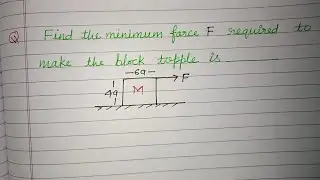 Q Find the minimum force F required to
make the block topple is
6a
F
4a
M